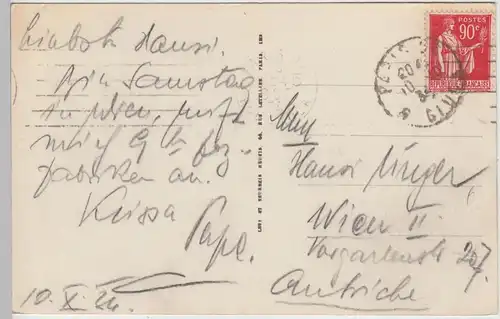 Liebste Hansi.
Bin Samstag
in Wien, ruft
mich 9 h
an.
Küsse
Pape.
10. X. 24.
LEVY ET NEURDEIN REUNIS, 44, RUE LETELLIER, PARIS, IMP
POSTES
90c
REPUBLIQUE FRANCAISE
PARIS
Hansi Unger
Wien II
Vorgartenstr 207
Autriche